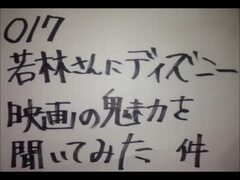 017
若林さんにディズニー
映画の魅力を
聞いてみた 件